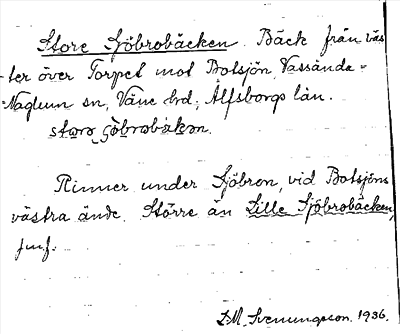 Store Sjöbrobäcken. Bäck från väs-
ter över Torpet mot Botsjön, Vassända-
Naglum sn, Väne hd, Älfsborgs län.
Rinner under Sjöbron, vid Botsjöns
västra ände. Större än Lille Sjöbrobäcken,
jmf.
D.M. Svenungsson. 1936.